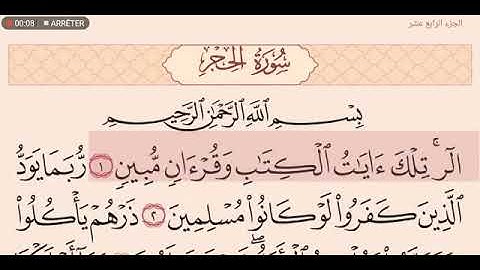 00:08 ARRÊTER
الجزء الرابع عشر
سُورَةُ الحِجْرِ
بِسْمِ اللَّهِ الرَّحْمَٰنِ الرَّحِيمِ
الٓرۚ تِلْكَ ءَايَٰتُ الْكِتَٰبِ وَقُرْءَانٍ مُّبِينٍ ١ رُّبَمَا يَوَدُّ
الَّذِينَ كَفَرُوا۟ لَوْ كَانُوا۟ مُسْلِمِينَ ٢ ذَرْهُمْ يَأْكُلُوا۟